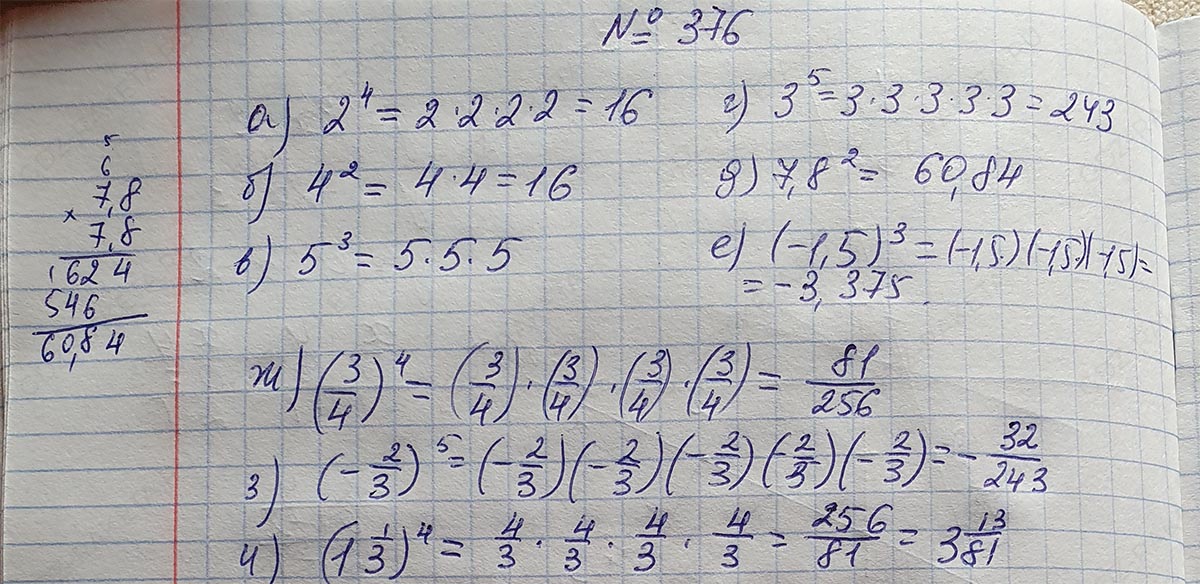 № 376
а) 2⁴ = 2·2·2·2 = 16
б) 4² = 4·4 = 16
в) 5³ = 5·5·5
г) 3⁵ = 3·3·3·3·3 = 243
д) 7,8² = 60,84
е) (-1,5)³ = (-1,5)(-1,5)(-1,5) =
= -3,375
5
6
7,8
× 7,8
1624
546
60,84
ж) (3/4)⁴ = (3/4)·(3/4)·(3/4)·(3/4) = 81/256
з) (-2/3)⁵ = (-2/3)(-2/3)(-2/3)(-2/3)(-2/3) = -32/243
и) (1 1/3)⁴ = 4/3 · 4/3 · 4/3 · 4/3 = 256/81 = 3 13/81